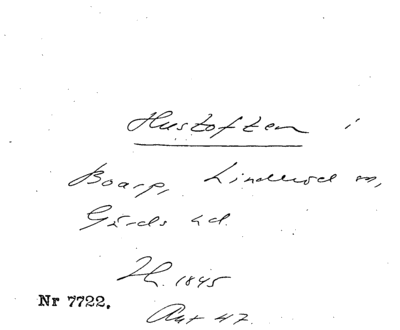 Hustoften i
Boarp, Linderöd sn,
Gärds hd.
Th. 1845
Nr 7722.
Ant 47.